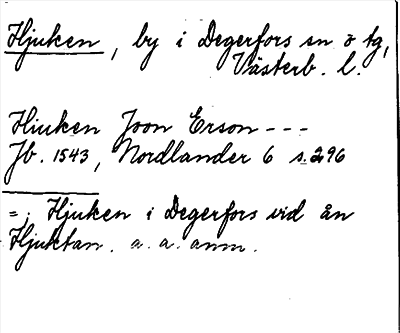 Hjuken, by i Degerfors sn o tg,
Västerb. l.
Hiuken Joon Erson - - -
Jb. 1543, Nordlander 6 s. 296
= Hjuken i Degerfors vid ån
Hjuktan. a. a. anm.